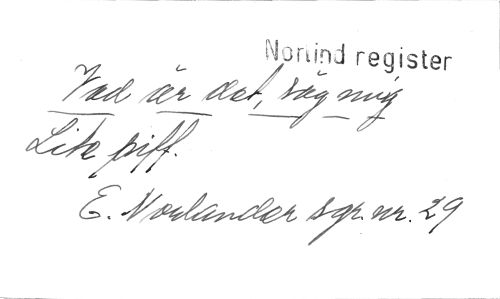 Norlind register
Vad är det, säg mig
Lite piff.
E. Norlander sgr. nr. 29